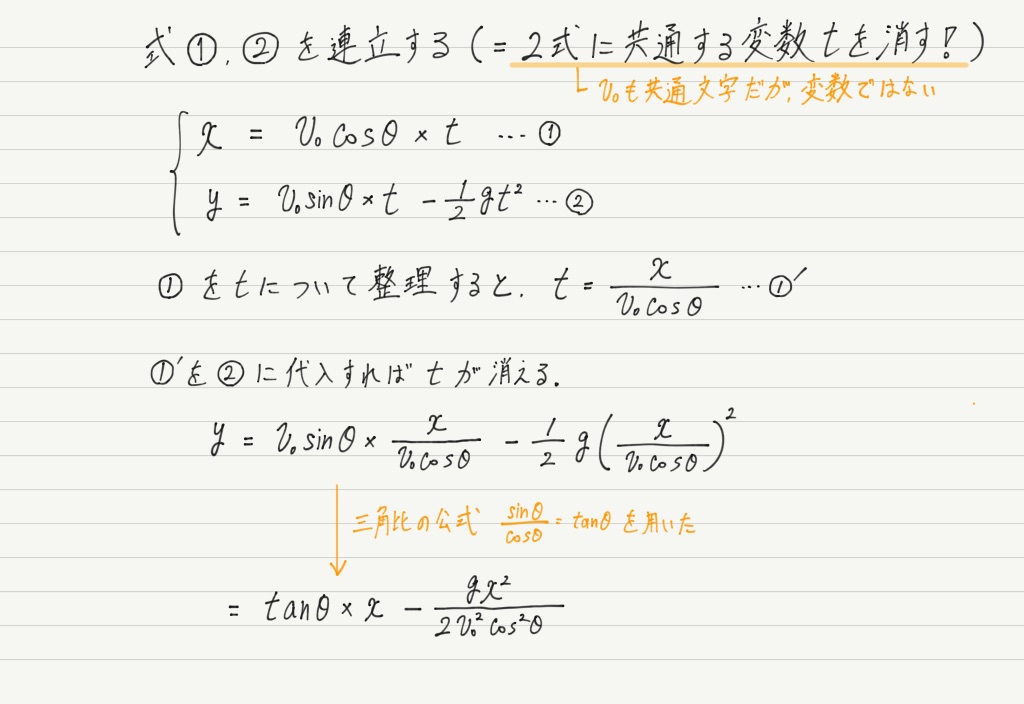 式①,②を連立する(=2式に共通する変数tを消す!)
v₀も共通文字だが,変数ではない
x = v₀cosθ × t …①
y = v₀sinθ × t - 1/2 gt² …②
①をtについて整理すると, t = x/(v₀cosθ) …①′
①′を②に代入すればtが消える.
y = v₀sinθ × x/(v₀cosθ) - 1/2 g(x/(v₀cosθ))²
三角比の公式 sinθ/cosθ = tanθ を用いた
= tanθ × x - gx²/(2v₀²cos²θ)